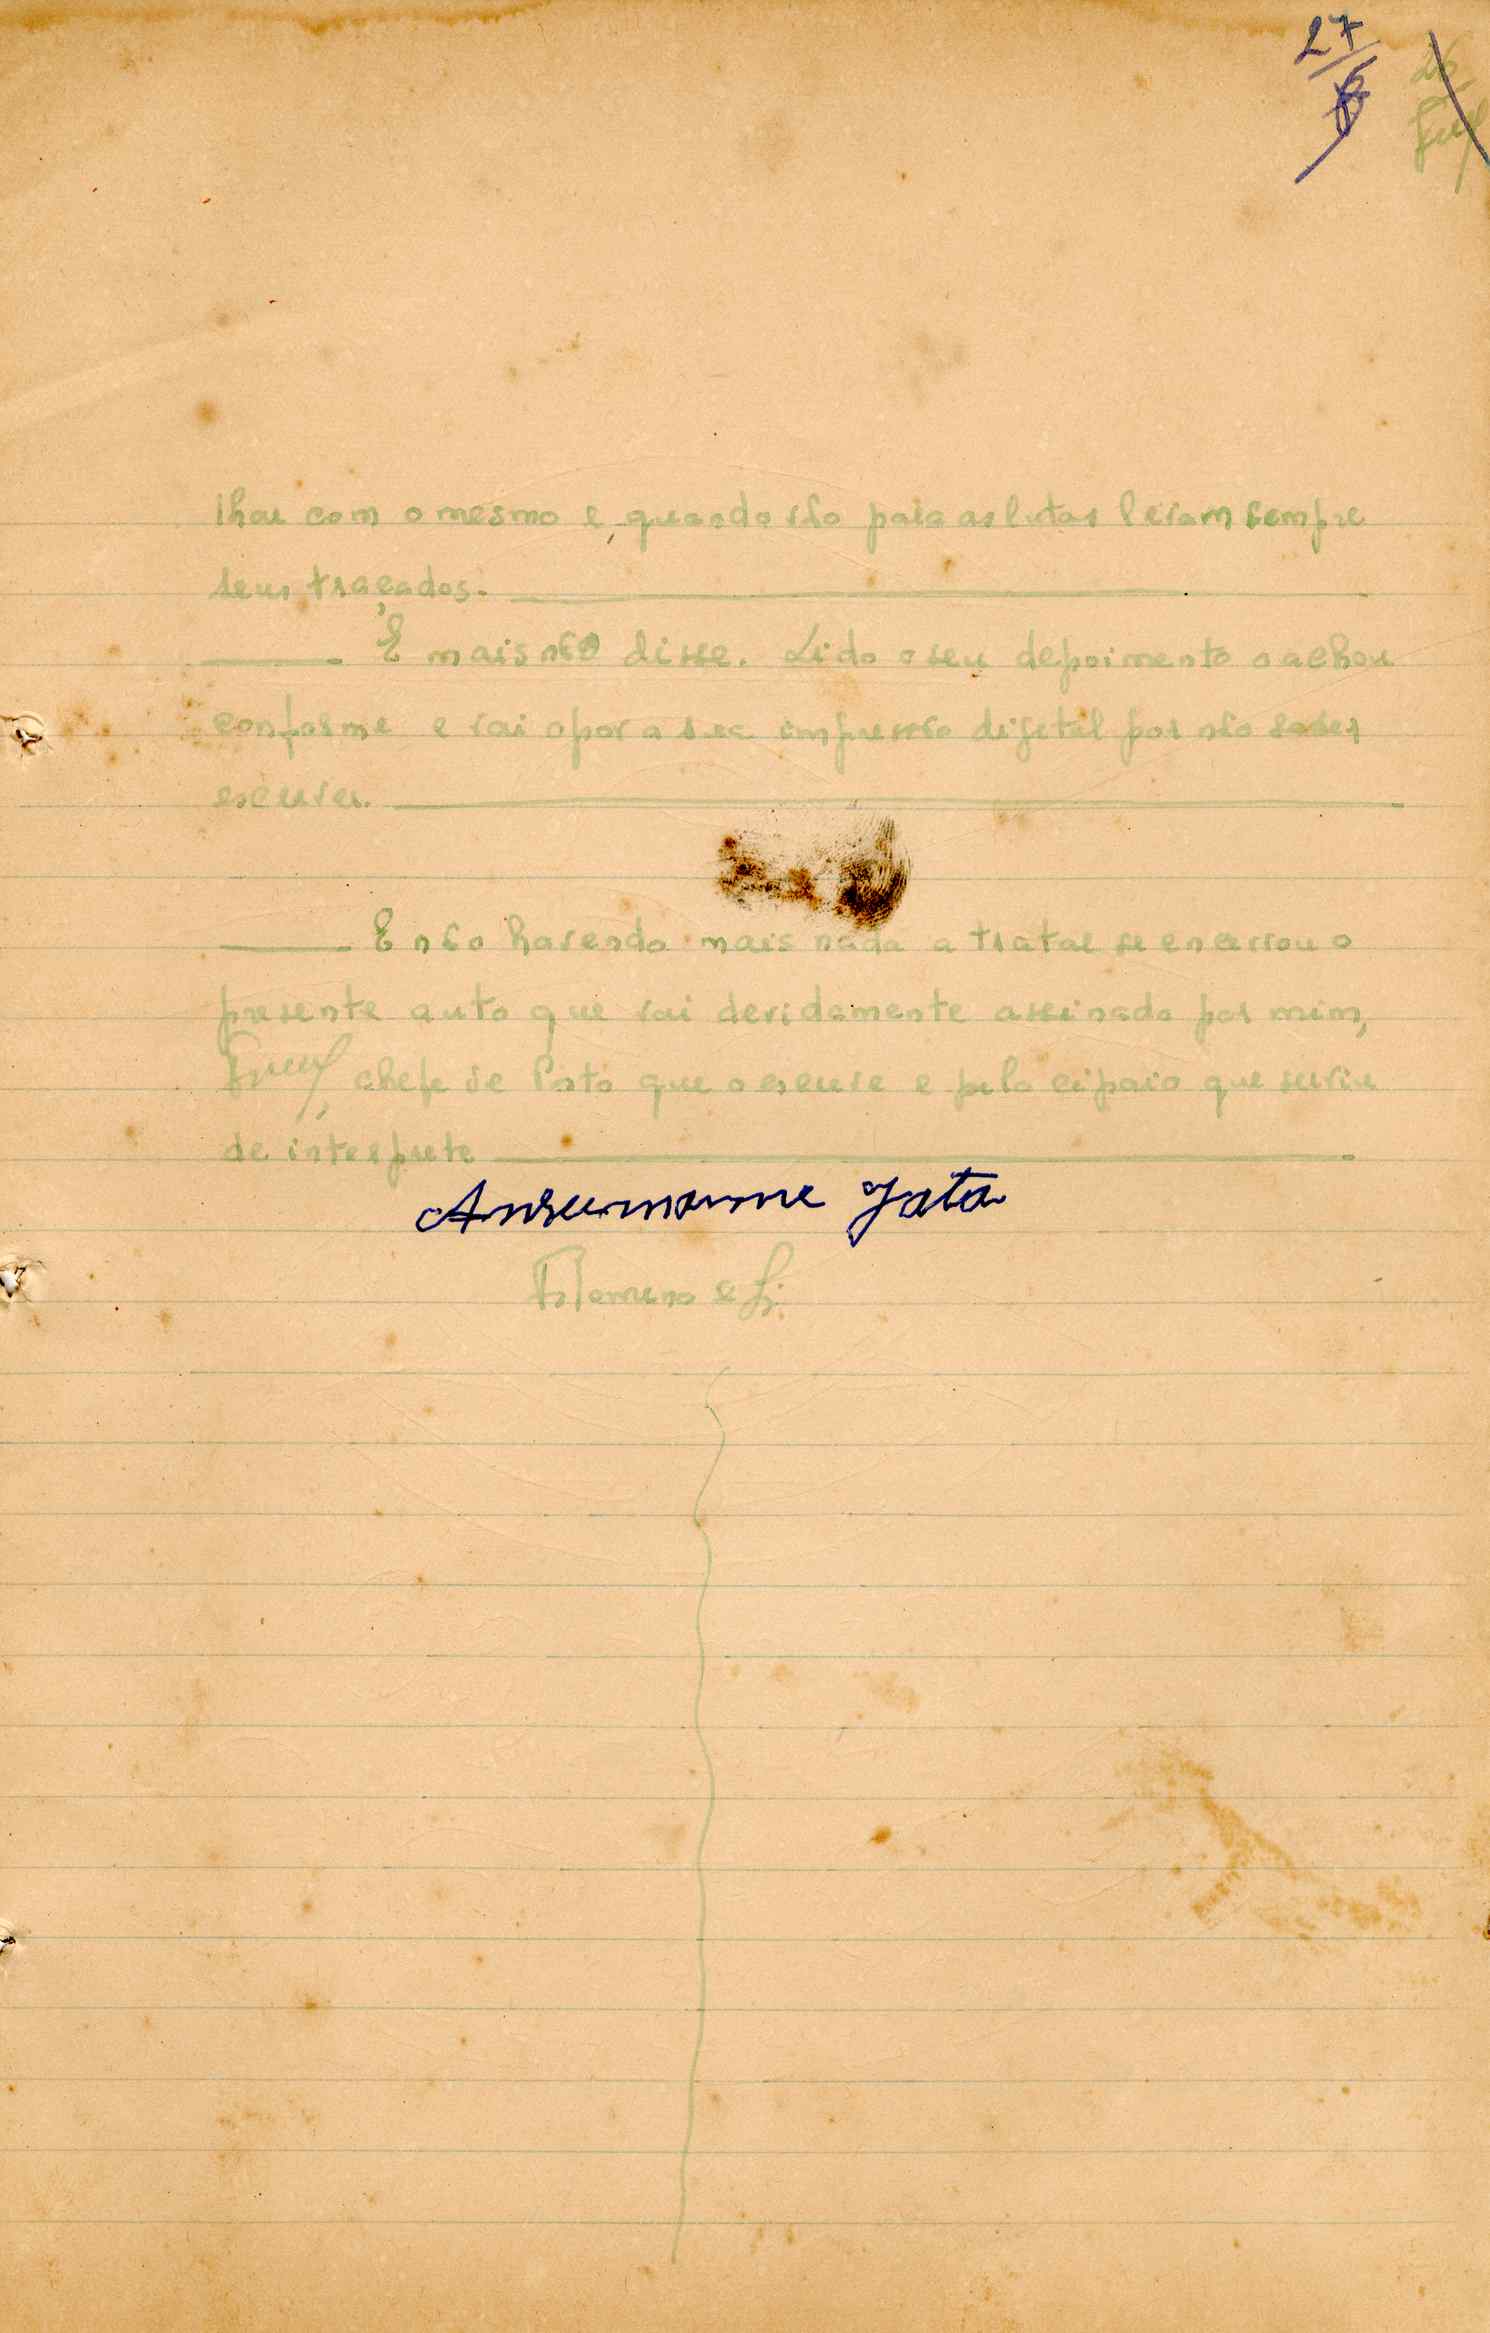 27
26
lhar com o mesmo e, quando vão para as lutas levam sempre
seus traçados.
E mais não disse. Lido o seu depoimento o achou
conforme e vai opor a sua impressão digital por não saber
escrever.
E não havendo mais nada a tratar se encerrou o
presente auto que vai devidamente assinado por mim,
chefe de Posto que o escrevi e pelo cipaio que serviu
de intérprete
Ansumanne Jata